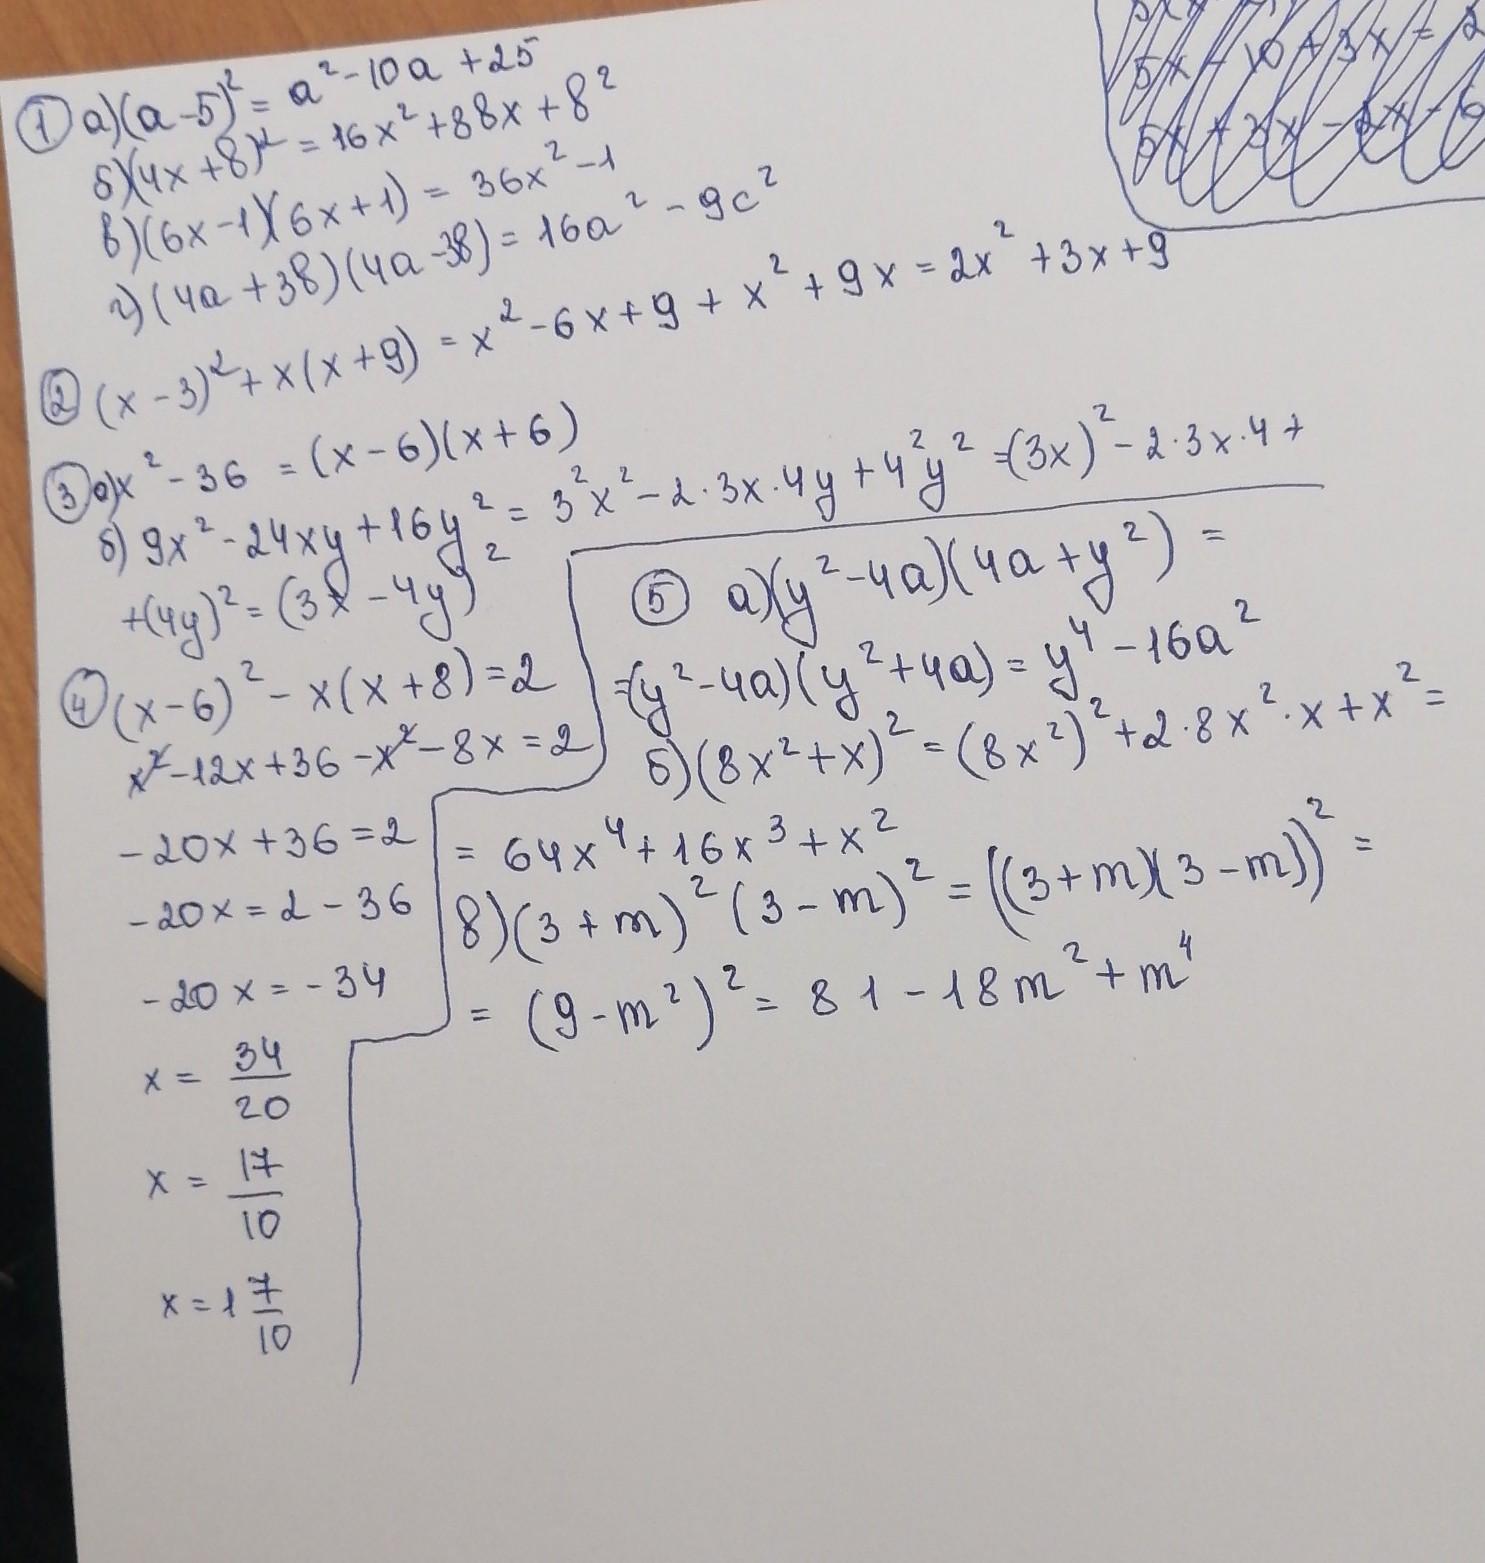 ① а)(a-5)² = a² - 10a + 25
б)(4x + 8)² = 16x² + 88x + 8²
в)(6x-1)(6x+1) = 36x² - 1
г)(4a + 38)(4a - 38) = 16a² - 9c²
② (x - 3)² + x(x + 9) = x² - 6x + 9 + x² + 9x = 2x² + 3x + 9
③ а)x² - 36 = (x - 6)(x + 6)
б) 9x² - 24xy + 16y² = 3²x² - 2·3x·4y + 4²y² = (3x)² - 2·3x·4 +
+(4y)² = (3x - 4y)²
④ (x - 6)² - x(x + 8) = 2
x² - 12x + 36 - x² - 8x = 2
-20x + 36 = 2
-20x = 2 - 36
-20x = -34
x = 34/20
x = 17/10
x = 1 7/10
⑤ а)(y² - 4a)(4a + y²) =
=(y² - 4a)(y² + 4a) = y⁴ - 16a²
б)(8x² + x)² = (8x²)² + 2·8x²·x + x² =
= 64x⁴ + 16x³ + x²
8)(3 + m)²(3 - m)² = ((3 + m)(3 - m))² =
= (9 - m²)² = 81 - 18m² + m⁴